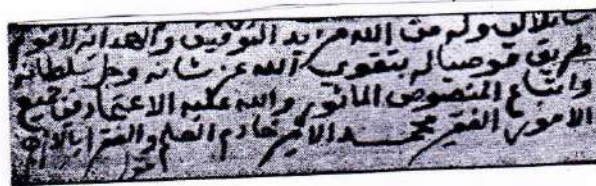 سائلا لي وله من الله مزايد التوفيق والهداية لاقوم
طريق موصيا له بتقوى الله عز شانه وجل سلطانه
واتباع المنصوص الماثور والله عليه الاعتماد في جميع
الامور الفقير محمد الامير خادم العلم والفقرا بالازهر